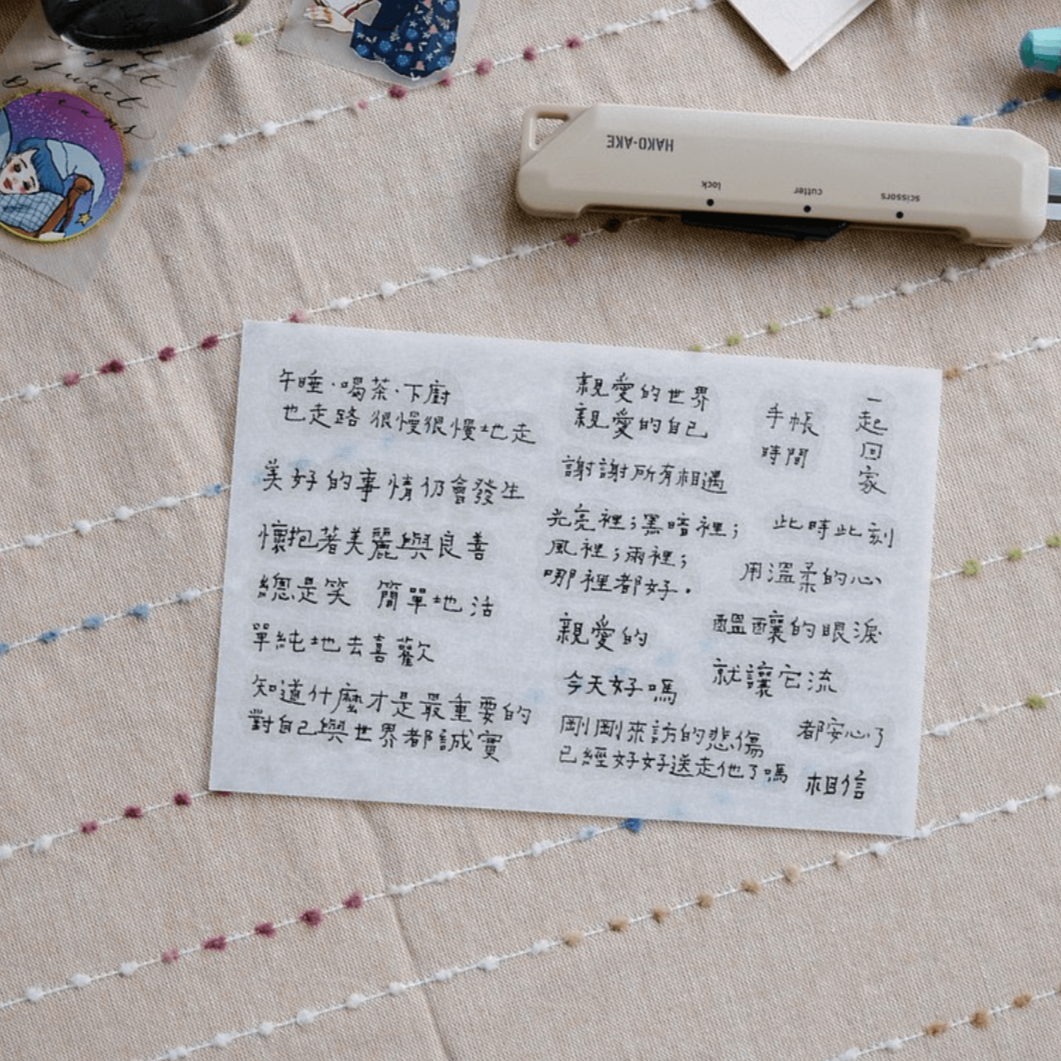 Sweet
Dreams
HAKO-AKE
lock
cutter
scissors
午睡·喝茶·下廚
也走路 很慢很慢地走
美好的事情仍會發生
懷抱著美麗與良善
總是笑 簡單地活
單純地去喜歡
知道什麼才是最重要的
對自己與世界都誠實
親愛的世界
親愛的自己
謝謝所有相遇
光亮裡;黑暗裡;
風裡;雨裡;
哪裡都好.
親愛的
今天好嗎
剛剛來訪的悲傷
已經好好送走他了嗎
手帳
時間
一起回家
此時此刻
用溫柔的心
醞釀的眼淚
就讓它流
都安心了
相信